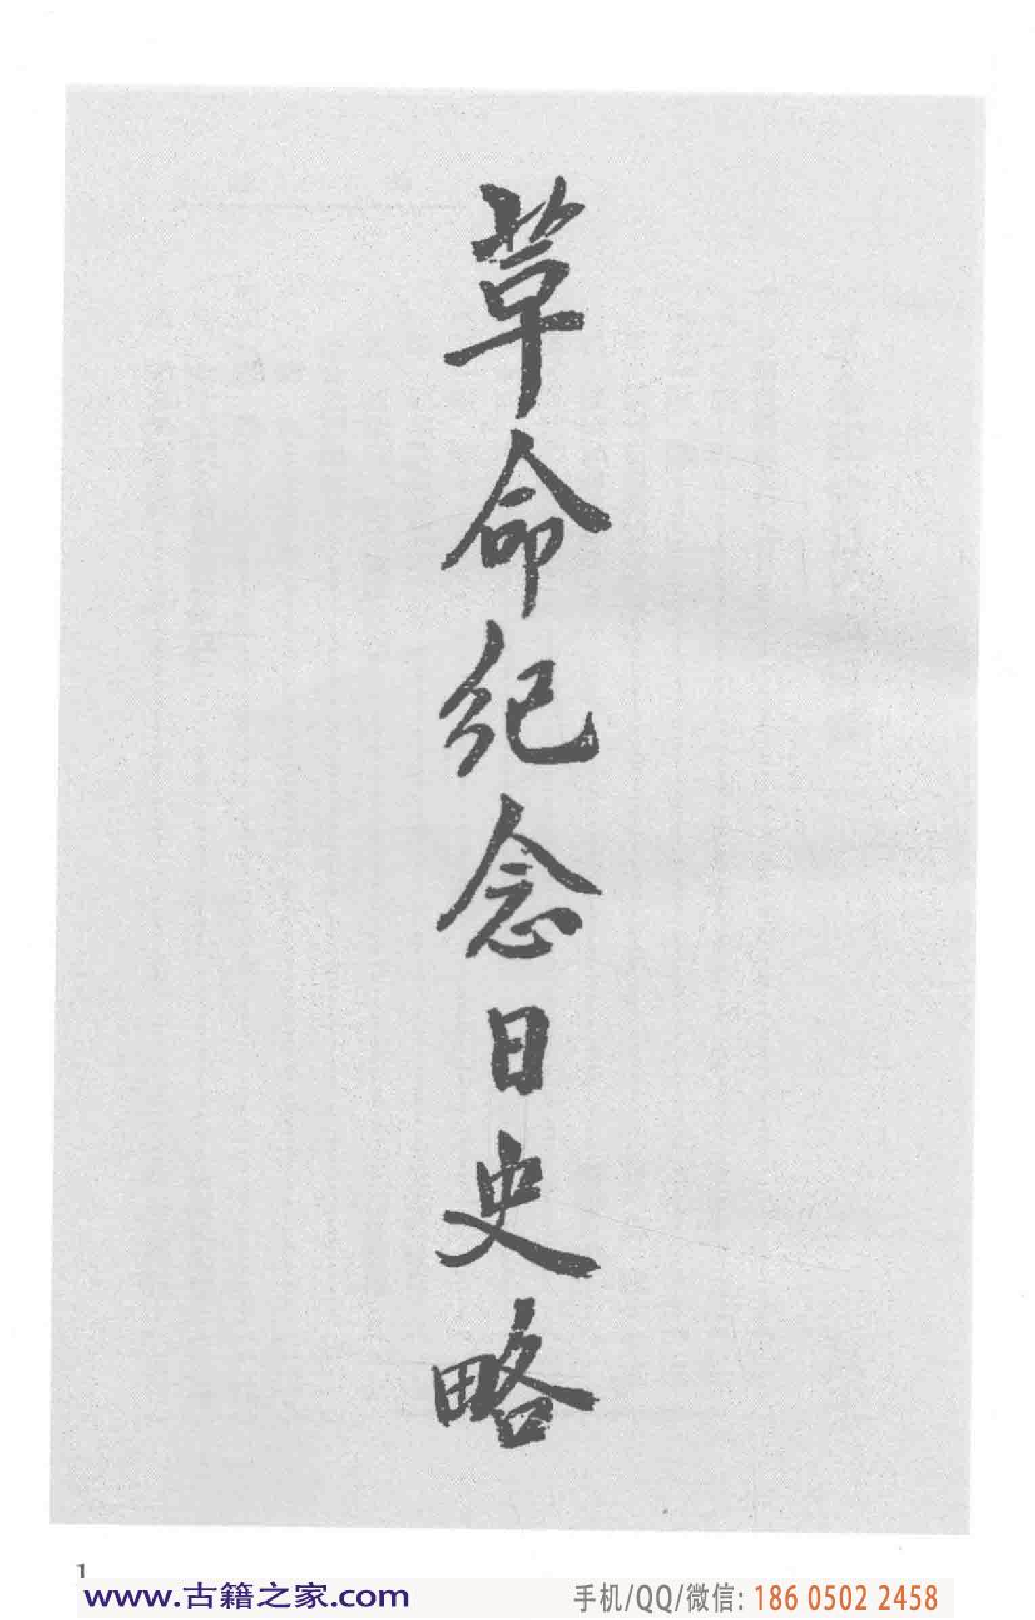 革命纪念日史略
1
www.古籍之家.com
手机/QQ/微信: 186 0502 2458